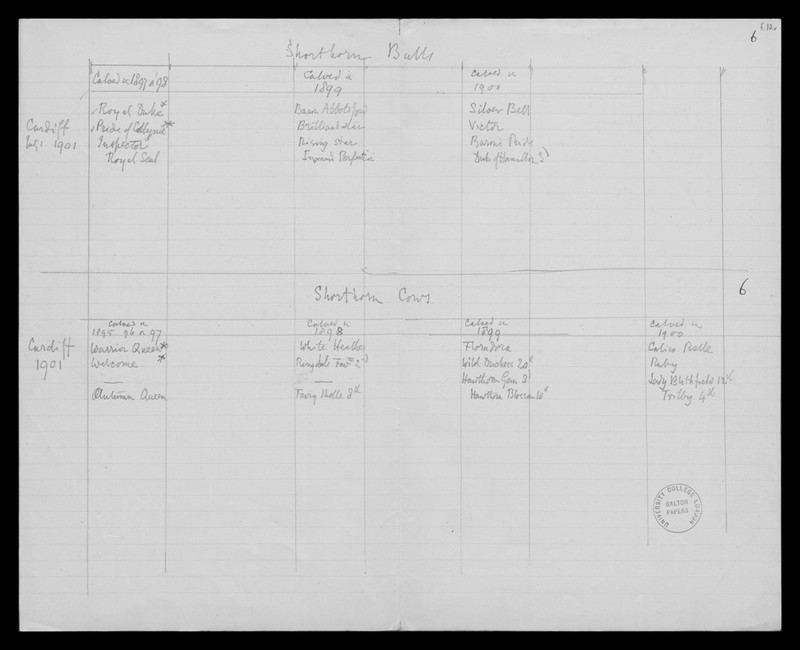 6 f.12r
Shorthorn Bulls
Calved in 1897 or 98
Calved in 1899
Calved in 1900
Cardiff 1901
Royal Duke*
Pride of Collynie**
Inspector
Royal Seal
Baron Abbotsford
Brilliant Star
Rising Star
Perfection
Silver Bell
Victor
Baron's Pride
Duke of Hamilton 3d
6
Shorthorn Cows
Calved in 1895 96 or 97
Calved in 1898
Calved in 1899
Calved in 1900
Cardiff 1901
Warrior Queen*
Welcome *
—
Autumn Queen
White Heather
Ringdale 2d
—
Fairy 3th
Floradora
Wild Duchess 20th
Hawthorn Gem 3
Hawthorn Blossom 10th
Calico Belle
Ruby
Lady Blithfield 12th
Trilby 4th
UNIVERSITY COLLEGE LONDON
GALTON
PAPERS